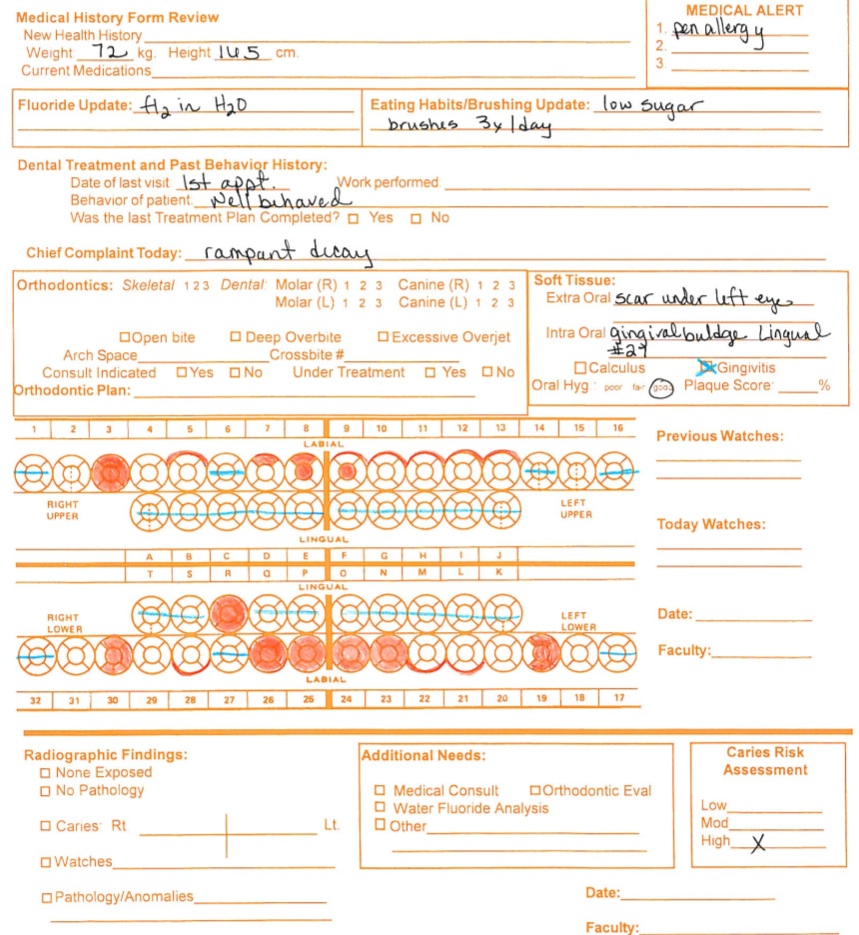 Medical History Form Review
New Health History
Weight 72 kg. Height 145 cm.
Current Medications
MEDICAL ALERT
1. pen allergy
2.
3.
Fluoride Update: fl2 in H2O
Eating Habits/Brushing Update: low sugar
brushes 3x/day
Dental Treatment and Past Behavior History:
Date of last visit 1st appt. Work performed
Behavior of patient. Well behaved
Was the last Treatment Plan Completed? Yes No
Chief Complaint Today: rampant decay
Orthodontics: Skeletal 1 2 3 Dental: Molar (R) 1 2 3 Canine (R) 1 2 3
Molar (L) 1 2 3 Canine (L) 1 2 3
Open bite Deep Overbite Excessive Overjet
Arch Space Crossbite #
Consult Indicated Yes No Under Treatment Yes No
Orthodontic Plan:
Soft Tissue:
Extra Oral scar under left eye
Intra Oral gingival buldge Lingual
#27
Calculus Gingivitis
Oral Hyg: poor fair good Plaque Score: %
1 2 3 4 5 6 7 8 9 10 11 12 13 14 15 16
LABIAL
RIGHT UPPER
LEFT UPPER
LINGUAL
A B C D E F G H I J
T S R Q P O N M L K
LINGUAL
RIGHT LOWER
LEFT LOWER
LABIAL
32 31 30 29 28 27 26 25 24 23 22 21 20 19 18 17
Previous Watches:
Today Watches:
Date:
Faculty:
Radiographic Findings:
None Exposed
No Pathology
Caries: Rt Lt.
Watches
Pathology/Anomalies
Additional Needs:
Medical Consult Orthodontic Eval
Water Fluoride Analysis
Other
Caries Risk
Assessment
Low
Mod
High X
Date:
Faculty: